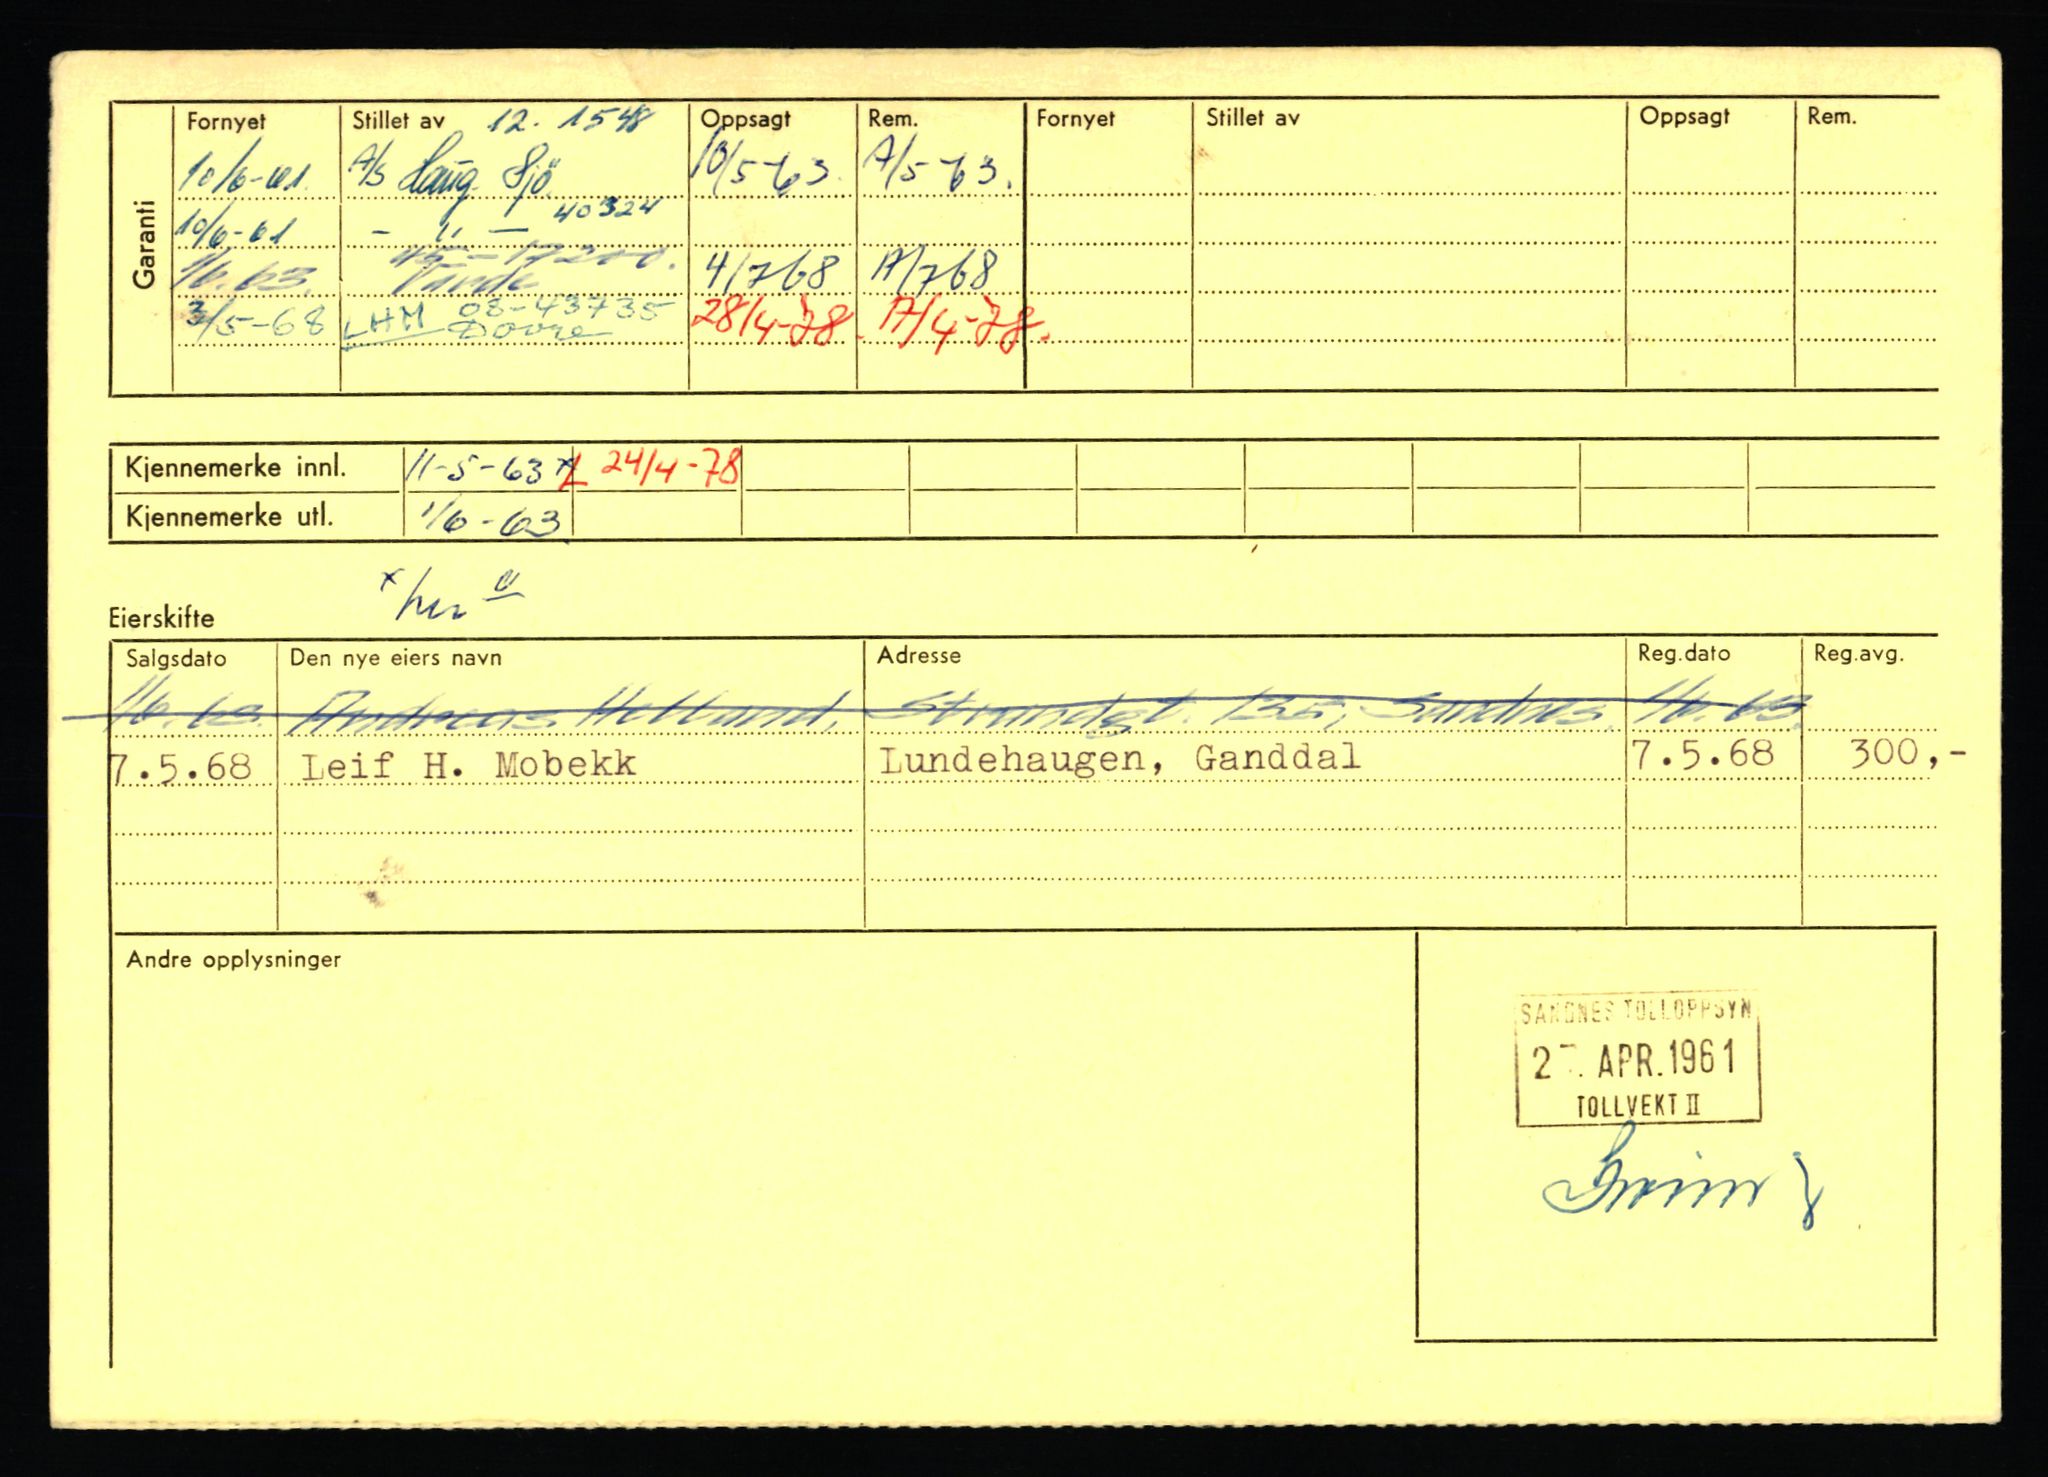 Garanti
Fornyet Stillet av 12. 1548 Oppsagt Rem. Fornyet Stillet av Oppsagt Rem.
10/6-61. A/S Haug. Sjö. 10/5-63. A/5-63.
10/6-61 - " - 40324
1/6.63. 45-17200. 4/7 68 A/7 68
3/5-68 LHM 08-43735 Dovre 28/4-78. A/4-78.
Kjennemerke innl. 11-5-63 x L 24/4-78
Kjennemerke utl. 1/6-63
x
Eierskifte
Salgsdato Den nye eiers navn Adresse Reg.dato Reg.avg.
1/6.63. Andreas Helland, Strandgt. 135, Sandnes. 1/6.63.
7.5.68 Leif H. Mobekk Lundehaugen, Ganddal 7.5.68 300,-
Andre opplysninger
SANDNES TOLLOPPSYN
APR.1961
TOLLVEKT II